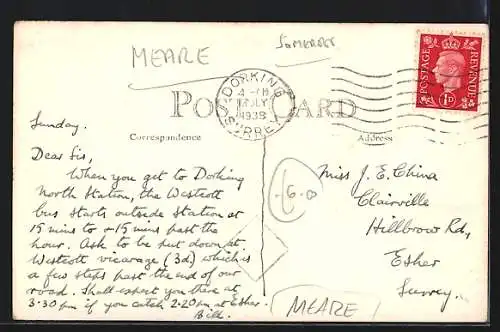 MEARE
SOMERSET
DORKING
SURREY
JLY
1938
POSTAGE
REVENUE
1D
POST CARD
Correspondence
Address
Sunday.
Dear Sis,
When you get to Dorking
North Station, the Westcott
bus starts outside Station at
15 mins to & 15 mins past the
hour. Ask to be put down at
Westcott vicarage (3d) which is
a few steps past the end of our
road. Shall expect you there at
3.30 pm if you catch 2.20 pm at Esher.
Bill.
Miss J. E. China
Clairville
Hillbrow Rd,
Esher
Surrey.
MEARE